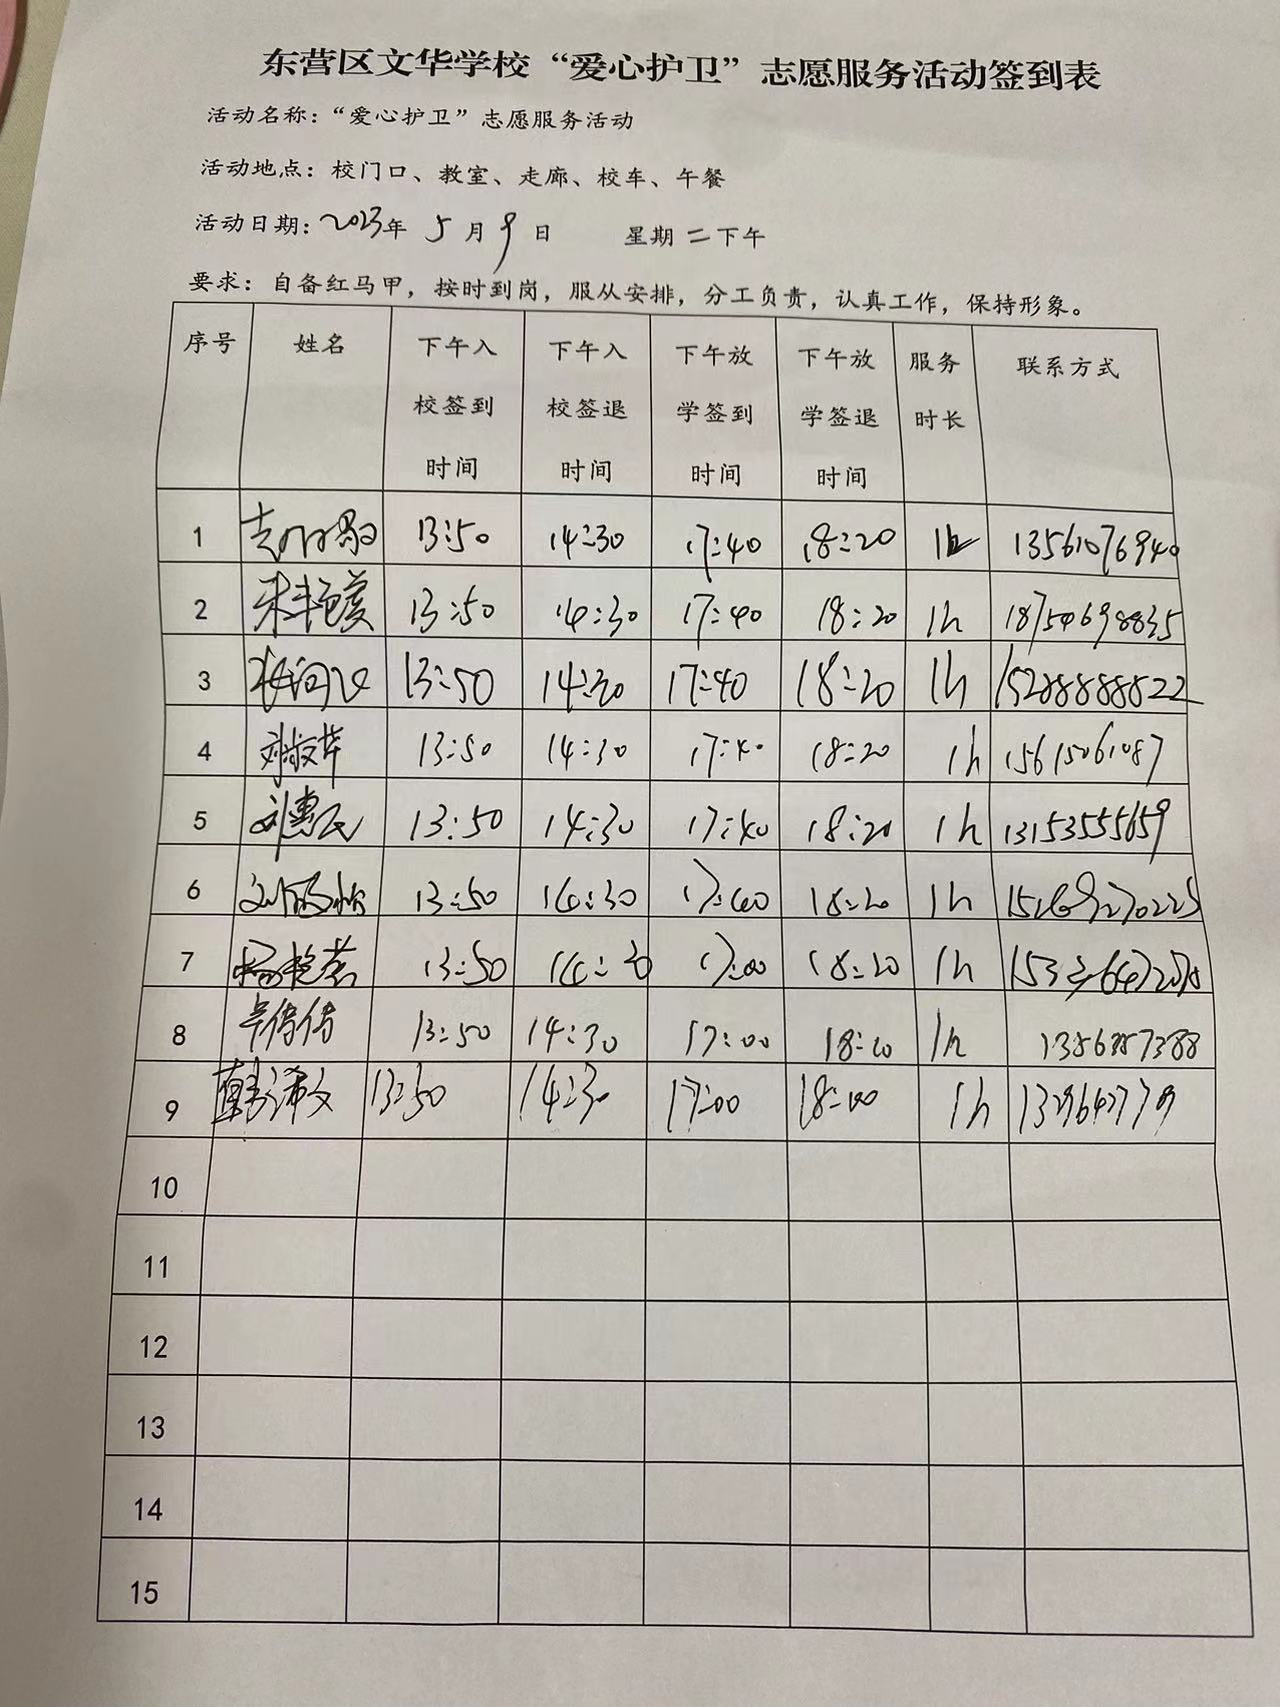 东营区文华学校“爱心护卫”志愿服务活动签到表
活动名称：“爱心护卫”志愿服务活动
活动地点：校门口、教室、走廊、校车、午餐
活动日期：2023年 5月9日 星期二下午
要求：自备红马甲，按时到岗，服从安排，分工负责，认真工作，保持形象。
序号 姓名 下午入校签到时间 下午入校签退时间 下午放学签到时间 下午放学签退时间 服务时长 联系方式
1 13:50 14:30 17:40 18:20 1h 13561076940
2 13:50 14:30 17:40 18:20 1h 18754698835
3 13:50 14:30 17:40 18:20 1h 15288888822
4 刘淑苹 13:50 14:30 17:40 18:20 1h 15615061087
5 刘惠民 13:50 14:30 17:40 18:20 1h 13153555659
6 13:50 14:30 17:40 18:20 1h
7 13:50 14:30 17:00 18:20 1h
8 13:50 14:30 17:00 18:20 1h
9 韩希文 13:50 14:30 17:00 18:00 1h
10
11
12
13
14
15